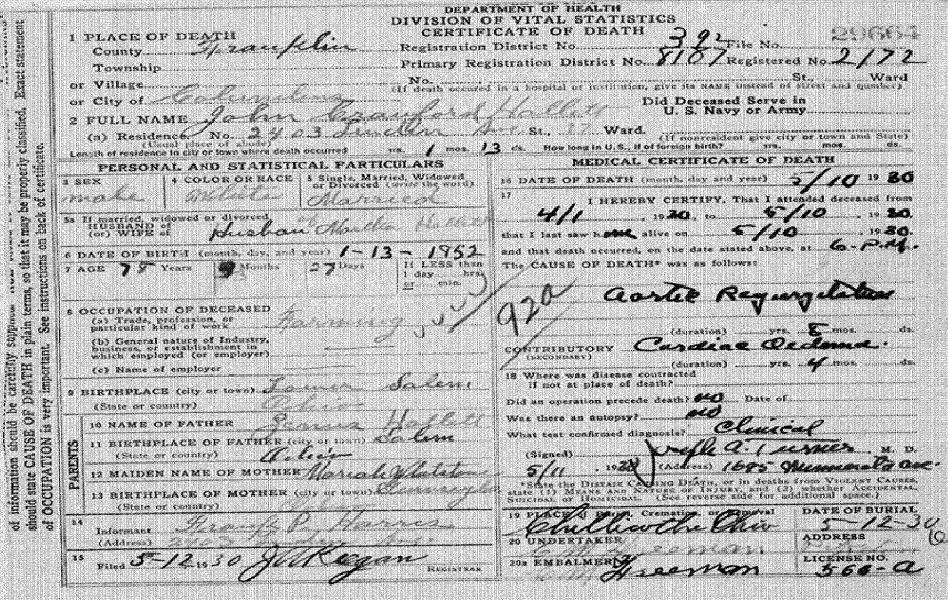 DEPARTMENT OF HEALTH
DIVISION OF VITAL STATISTICS
CERTIFICATE OF DEATH
1 PLACE OF DEATH
County Franklin
Registration District No. 392 File No. 29664
Township
Primary Registration District No. 8107 Registered No. 2172
or Village
No. St., Ward
(If death occurred in a hospital or institution, give its NAME instead of street and number)
or City of Columbus
2 FULL NAME John Crawford Hallett
Did Deceased Serve in
U. S. Navy or Army
(a) Residence. No. 2403 Linden Ave St., Ward.
(Usual place of abode)
(If nonresident give city or town and State)
Length of residence in city or town where death occurred yrs. 1 mos. 13 ds. How long in U. S., if of foreign birth? yrs. mos. ds.
PERSONAL AND STATISTICAL PARTICULARS
3 SEX
male
4 COLOR OR RACE
White
5 Single, Married, Widowed
or Divorced (write the word)
Married
5a If married, widowed or divorced
HUSBAND of
(or) WIFE of
6 DATE OF BIRTH (month, day, and year) 1-13-1852
7 AGE 78 Years Months 27 Days
If LESS than
1 day hrs.
or min.
8 OCCUPATION OF DECEASED
(a) Trade, profession, or
particular kind of work Farming
(b) General nature of Industry,
business, or establishment in
which employed (or employer)
(c) Name of employer
9 BIRTHPLACE (city or town) Lower Salem
(State or country) Ohio
PARENTS
10 NAME OF FATHER Hallett
11 BIRTHPLACE OF FATHER (city or town) Salem
(State or country) Ohio
12 MAIDEN NAME OF MOTHER Mariah Whetstone
13 BIRTHPLACE OF MOTHER (city or town)
(State or country)
14
Informant Frank P. Harris
(Address) 2403 Linden Ave.
15
Filed 5-12 1930 Registrar
MEDICAL CERTIFICATE OF DEATH
16 DATE OF DEATH (month, day and year) 5/10 1930
17
I HEREBY CERTIFY, That I attended deceased from
4/1 1930, to 5/10 1930.
that I last saw him alive on 5/10 1930.
and that death occurred, on the date stated above, at 6 P.M.
The CAUSE OF DEATH* was as follows:
92a
Aortic Regurgitation
(duration) yrs. 8 mos. ds.
CONTRIBUTORY Cardiac Oedema.
(SECONDARY)
(duration) yrs. 4 mos. ds.
18 Where was disease contracted
if not at place of death?
Did an operation precede death? no Date of
Was there an autopsy? no
What test confirmed diagnosis? Clinical
(Signed) Joseph A. Turner M. D.
5/11, 1930 (Address) 1685 Minnesota Ave.
*State the DISEASE CAUSING DEATH, or in deaths from VIOLENT CAUSES,
state (1) MEANS AND NATURE OF INJURY, and (2) whether ACCIDENTAL,
SUICIDAL or HOMICIDAL. (See reverse side for additional space.)
19 PLACE of Burial, Cremation, or Removal
Chillicothe Ohio
DATE OF BURIAL
5-12-30
20 UNDERTAKER
Freeman
ADDRESS
20a EMBALMER
Freeman
LICENSE NO.
566-A
of information should be carefully supplied
should state CAUSE OF DEATH in plain terms, so that it may be properly classified. Exact statement
of OCCUPATION is very important. See instructions on back of certificate.